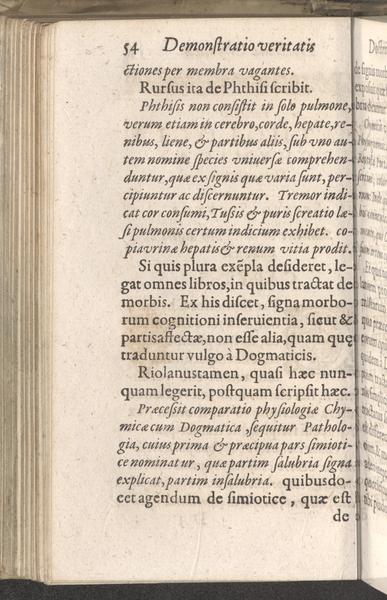 54 Demonſtratio veritatis
ctiones per membra vagantes.
Rurſus ita de Phthiſi ſcribit.
Phthiſis non conſiſtit in ſolo pulmone,
verum etiam in cerebro, corde, hepate, re-
nibus, liene, & partibus aliis, ſub vno au-
tem nomine ſpecies vniuerſæ comprehen-
duntur, quæ ex ſignis quæ varia ſunt, per-
cipiuntur ac diſcernuntur. Tremor indi-
cat cor conſumi, Tuſſis & puris ſcreatio læ-
ſi pulmonis certum indicium exhibet. co-
pia vrinæ hepatis & renum vitia prodit.
Si quis plura exẽpla deſideret, le-
gat omnes libros, in quibus tractat de
morbis. Ex his diſcet, ſigna morbo-
rum cognitioni inſeruientia, ſicut &
partis affectæ, non eſſe alia, quam quę
traduntur vulgo à Dogmaticis.
Riolanus tamen, quaſi hæc nun-
quam legerit, poſtquam ſcripſit hæc.
Præceſſit comparatio phyſiologiæ Chy-
micæ cum Dogmatica, ſequitur Patholo-
gia, cuius prima & præcipua pars ſimioti-
ce nominatur, quæ partim ſalubria ſigna
explicat, partim inſalubria. quibus do-
cet agendum de ſimiotice, quæ eſt
de